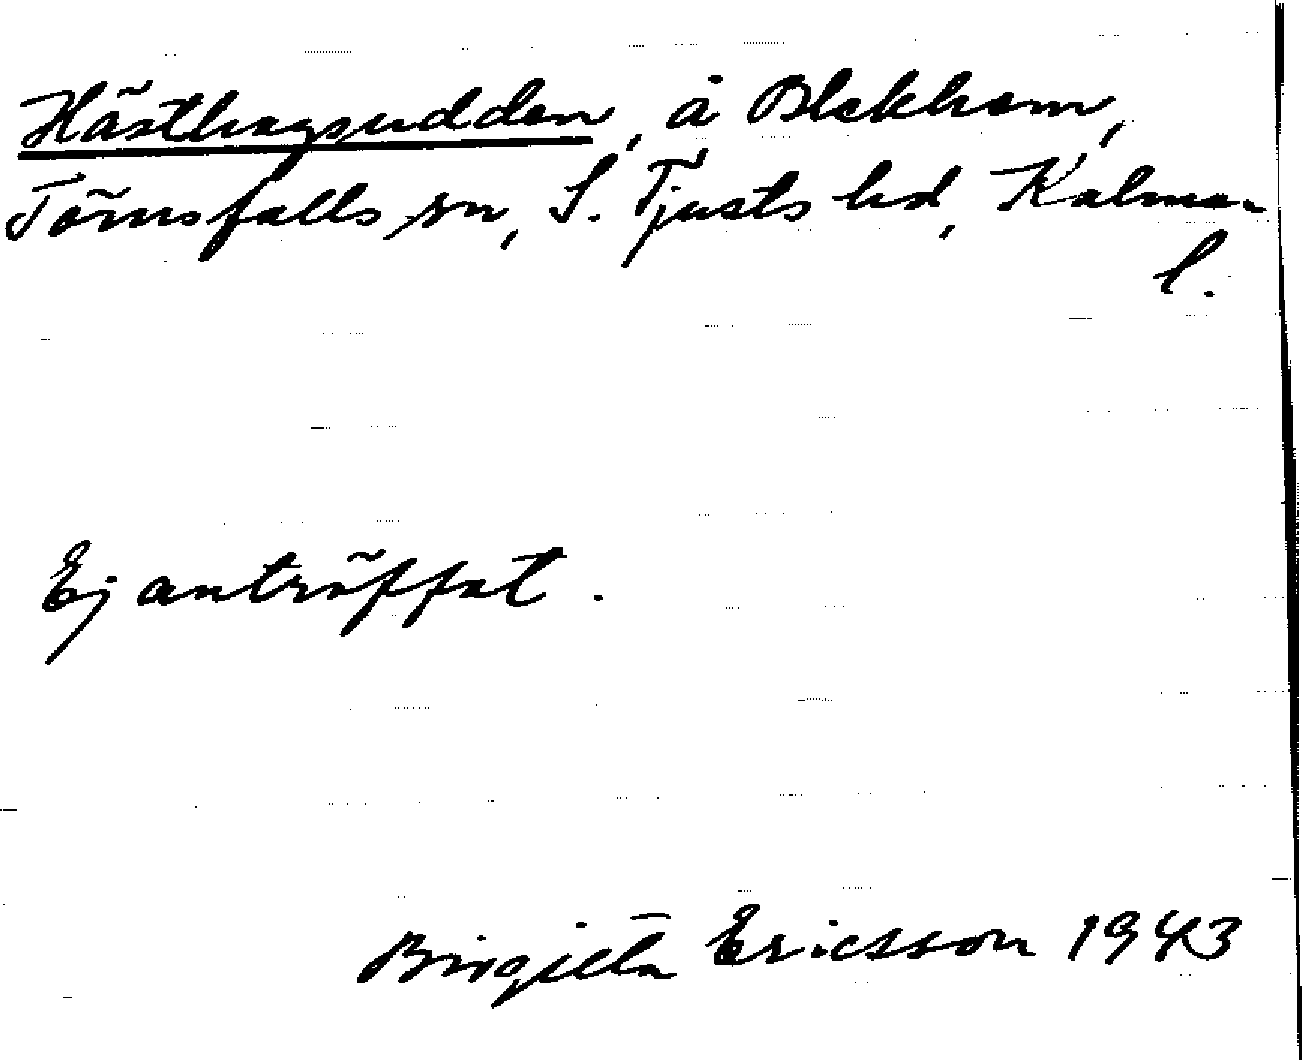 Hästhagsudden, å Blekhem,
Törnsfalls sn, S. Tjusts hd, Kalmar
l.
Ej anträffat.
Birgitta Ericsson 1943